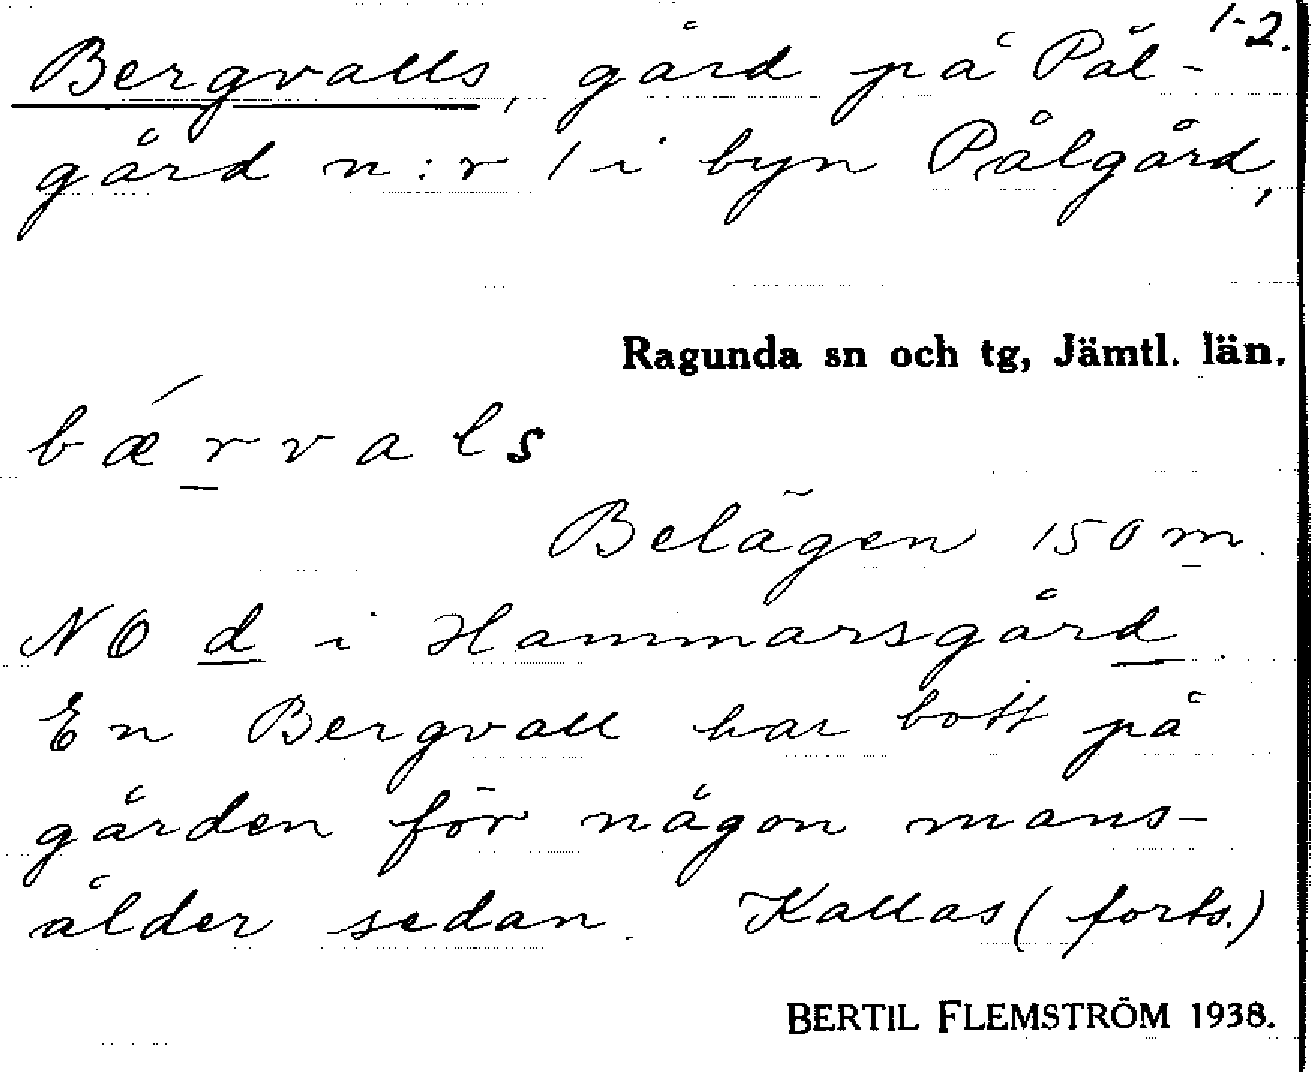 1-2.
Bergvalls, gård på Pål-
gård n:r 1 i byn Pålgård,
Ragunda sn och tg, Jämtl. län.
bǽrvals
Belägen 150 m.
NO d i Hammarsgård.
En Bergvall har bott på
gården för någon mans-
ålder sedan. Kallas (forts.)
BERTIL FLEMSTRÖM 1938.